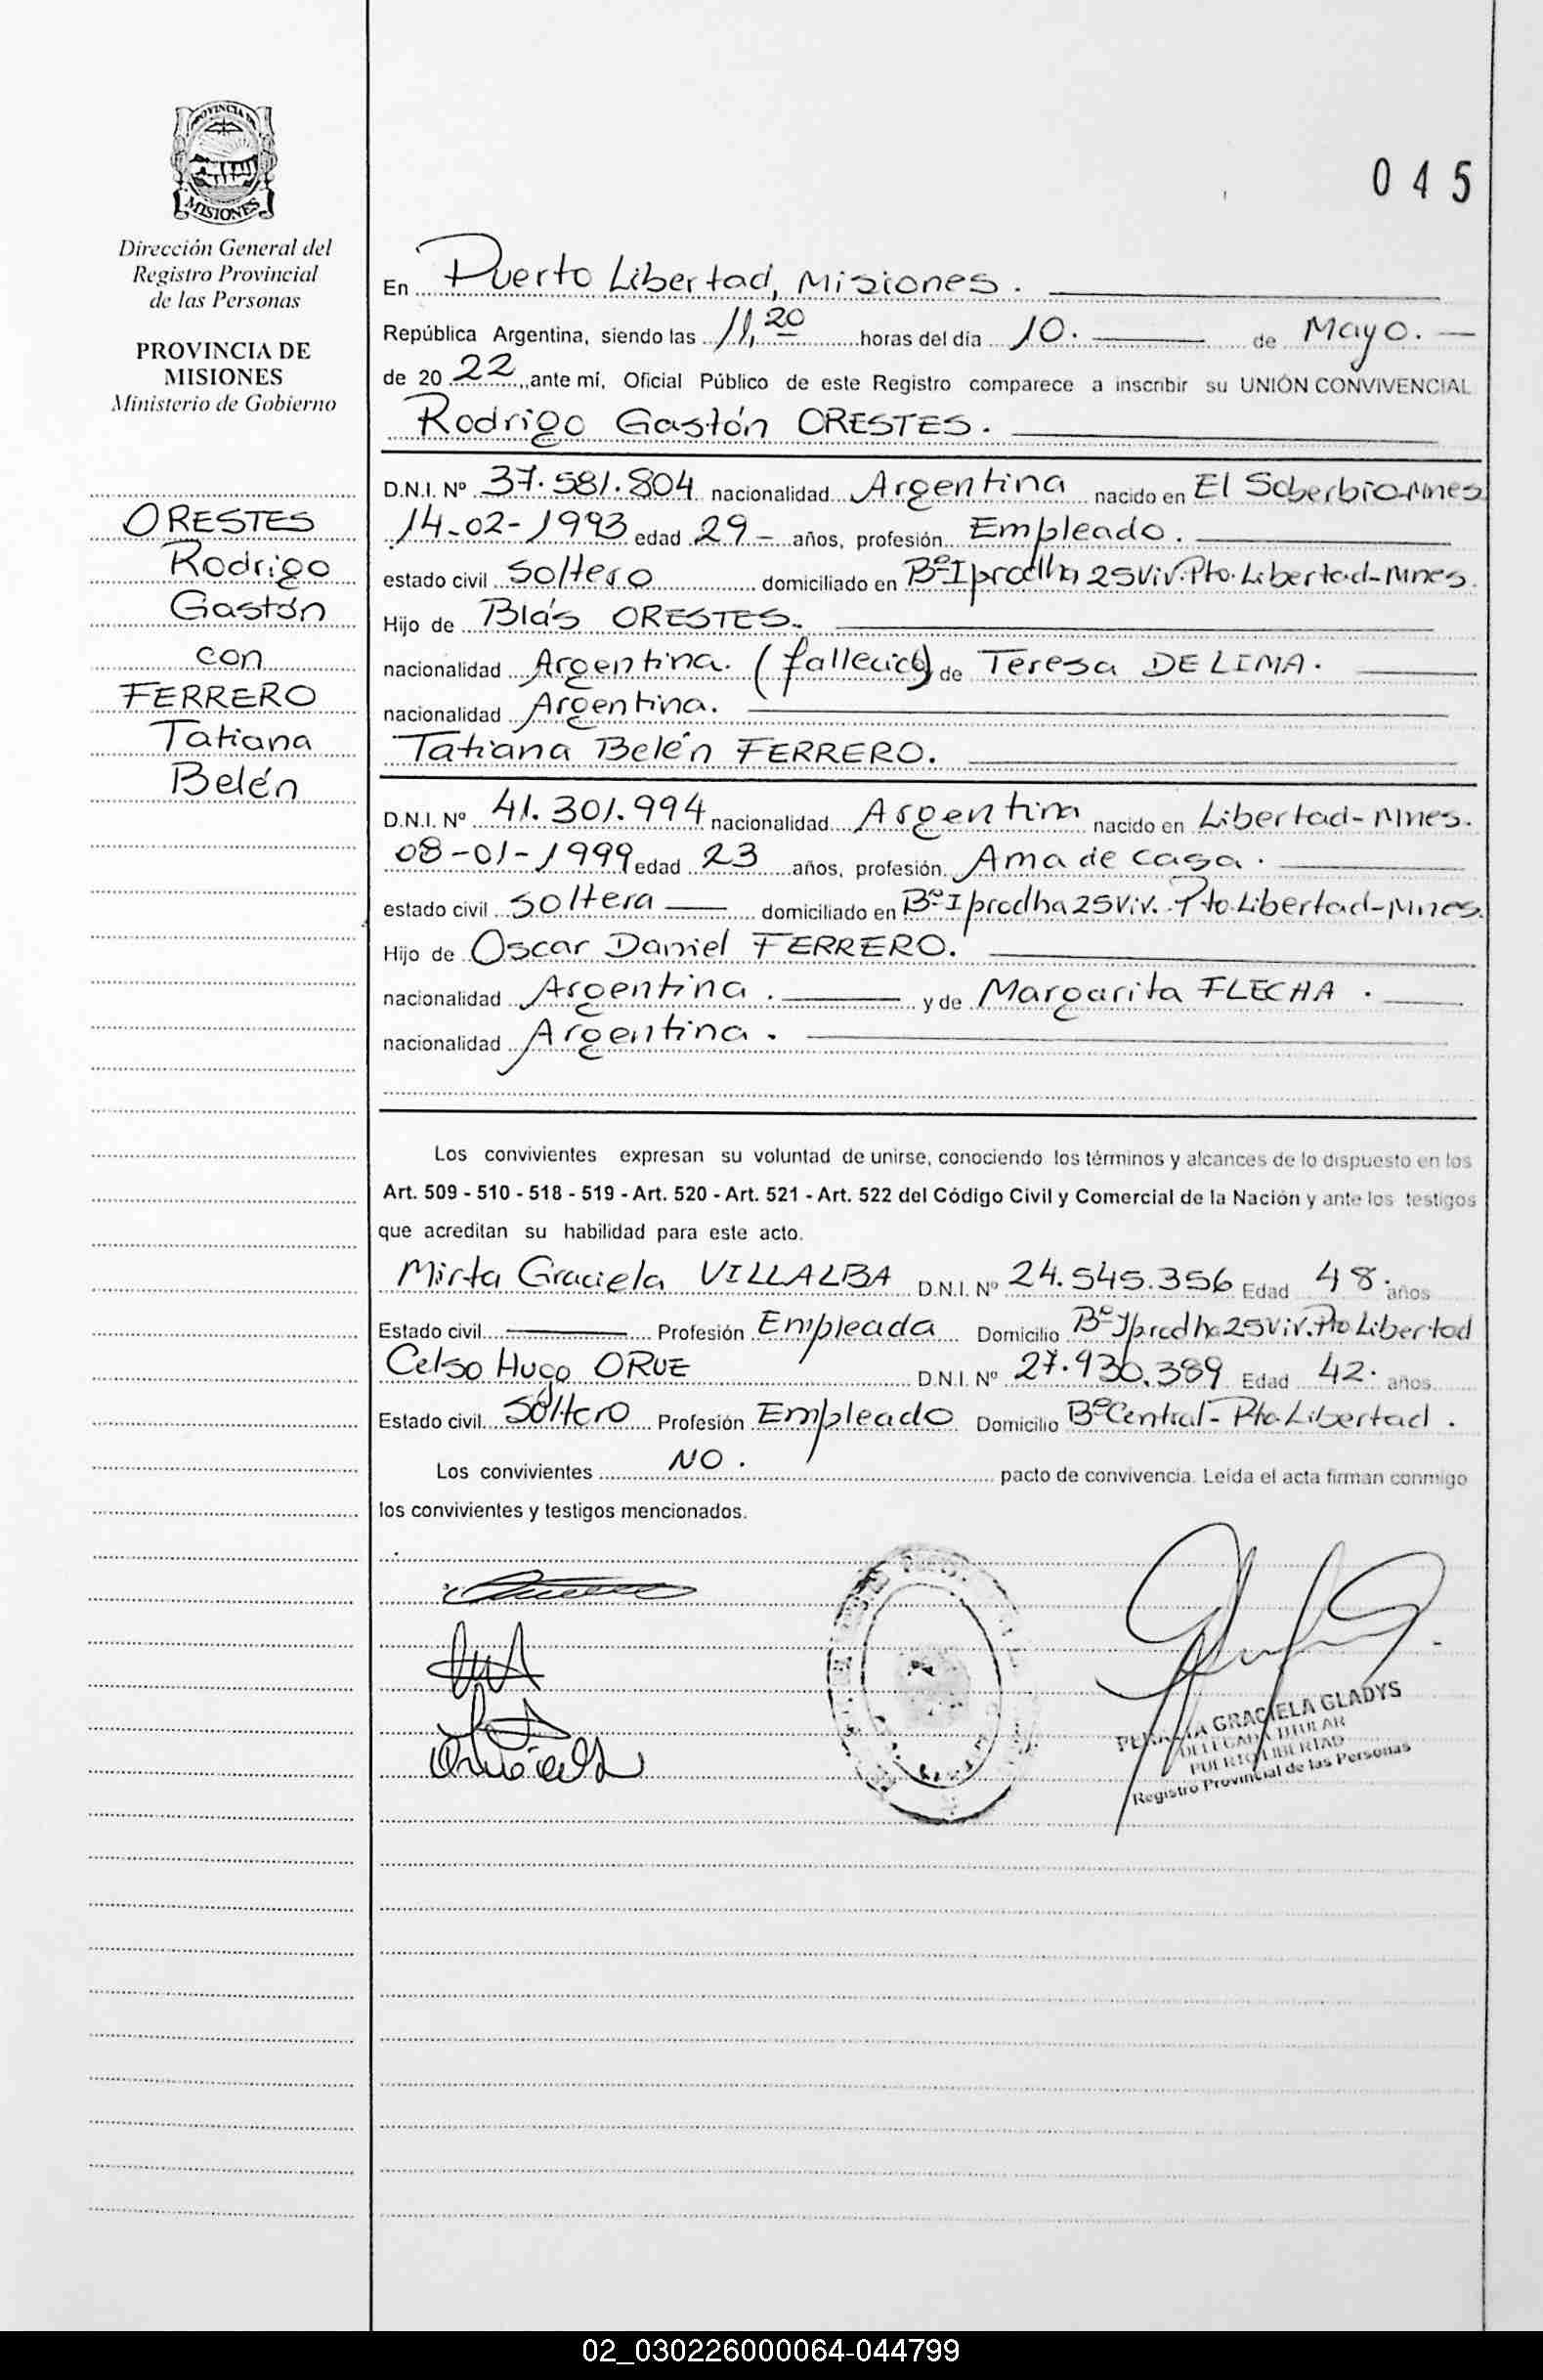 PROVINCIA DE
MISIONES
Dirección General del
Registro Provincial
de las Personas
PROVINCIA DE
MISIONES
Ministerio de Gobierno
ORESTES
Rodrigo
Gastón
con
FERRERO
Tatiana
Belén
045
En Puerto Libertad, Misiones.
República Argentina, siendo las 11,20 horas del día 10. de Mayo.
de 20 22 ,ante mí, Oficial Público de este Registro comparece a inscribir su UNIÓN CONVIVENCIAL
Rodrigo Gastón ORESTES.
D.N.I. Nº 37.581.804 nacionalidad Argentina nacido en El Soberbio-Mnes
14-02-1993 edad 29 años, profesión Empleado.
estado civil soltero domiciliado en Bº Iprodha 25Viv. Pto. Libertad-Mnes.
Hijo de Blás ORESTES.
nacionalidad Argentina. (fallecido) de Teresa DE LIMA.
nacionalidad Argentina.
Tatiana Belén FERRERO.
D.N.I. Nº 41.301.994 nacionalidad Argentina nacido en Libertad-Mnes.
08-01-1999 edad 23 años, profesión Ama de casa.
estado civil soltera domiciliado en Bº Iprodha 25Viv. Pto. Libertad-Mnes.
Hijo de Oscar Daniel FERRERO.
nacionalidad Argentina. y de Margarita FLECHA.
nacionalidad Argentina.
Los convivientes expresan su voluntad de unirse, conociendo los términos y alcances de lo dispuesto en los
Art. 509 - 510 - 518 - 519 - Art. 520 - Art. 521 - Art. 522 del Código Civil y Comercial de la Nación y ante los testigos
que acreditan su habilidad para este acto.
Mirta Graciela VILLALBA D.N.I. Nº 24.545.356 Edad 48. años
Estado civil Profesión Empleada Domicilio Bº Iprodha 25Viv. Pto Libertad
Celso Hugo ORUE D.N.I. Nº 27.930.389 Edad 42. años
Estado civil Soltero Profesión Empleado Domicilio Bº Central- Pto. Libertad.
Los convivientes NO. pacto de convivencia. Leída el acta firman conmigo
los convivientes y testigos mencionados.
GRACIELA GLADYS
DELEGADA TITULAR
PUERTO LIBERTAD
Registro Provincial de las Personas
02_030226000064-044799